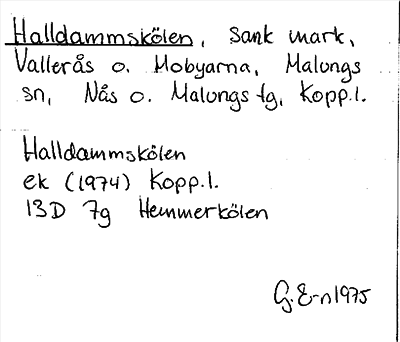 Halldammskölen, Sank mark,
Vallerås o. Mobyarna, Malungs
sn, Nås o. Malungs fg, Kopp.l.
Halldammskölen
ek (1974) Kopp.l.
13D 7g Hemmerkölen
G. E-n 1975